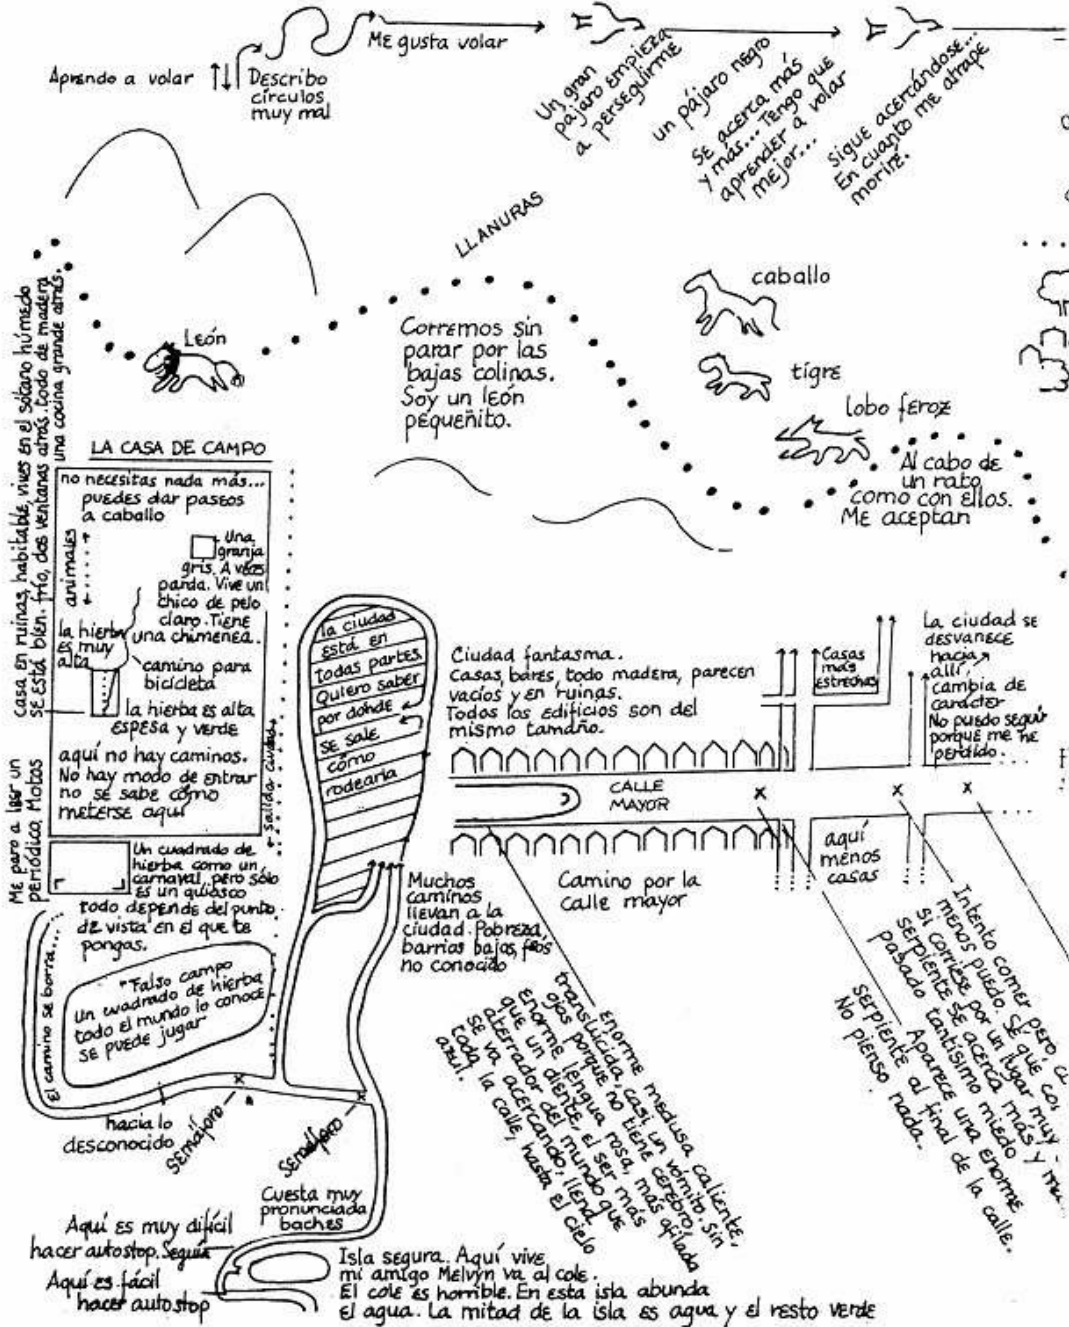 Aprendo a volar
Describo
círculos
muy mal
Me gusta volar
Un gran
pájaro empieza
a perseguirme
un pájaro negro
se acerca más
y más... Tengo que
aprender a volar
mejor...
sigue acercándose...
En cuanto me atrape
moriré.
LLANURAS
León
Corremos sin
parar por las
bajas colinas.
Soy un león
pequeñito.
caballo
tigre
lobo feroz
Al cabo de
un rato
como con ellos.
Me aceptan
Casa en ruinas, habitable, vives en el sótano húmedo
se está bien. frío, dos ventanas atrás. todo de madera
una cocina grande atrás.
LA CASA DE CAMPO
no necesitas nada más...
puedes dar paseos
a caballo
animales
Una
granja
gris. A veces
parda. Vive un
chico de pelo
claro. Tiene
una chimenea.
la hierba
es muy
alta
camino para
bicicleta
la hierba es alta
espesa y verde
aquí no hay caminos.
No hay modo de entrar
no se sabe cómo
meterse aquí
salida ciudad
Me paro a leer un
periódico, Motos
Un cuadrado de
hierba como un
carnaval, pero sólo
es un quiosco
todo depende del punto
de vista en el que te
pongas.
El camino se borra...
"Falso campo
Un cuadrado de hierba
todo el mundo lo conoce
se puede jugar
hacia lo
desconocido
semáforo
semáforo
la ciudad
está en
todas partes
Quiero saber
por donde
se sale
cómo
rodearla
Muchos
caminos
llevan a la
ciudad. Pobreza,
barrios bajos, feos
no conocido
Ciudad fantasma.
Casas, bares, todo madera, parecen
vacíos y en ruinas.
Todos los edificios son del
mismo tamaño.
CALLE
MAYOR
Camino por la
calle mayor
Casas
más
estrechas
La ciudad se
desvanece
hacia
allí,
cambia de
carácter
No puedo seguir
porque me he
perdido.
aquí
menos
casas
enorme medusa caliente,
translúcida, casi un vómito sin
ojos porque no tiene cerebro, sin
enorme lengua rosa, más afilada
que un diente, el ser más
aterrador del mundo que
se va acercando, llena
toda la calle, hasta el cielo
azul.
Intento comer pero, cu
menos puedo. Sé que co,
si corriese por un lugar muy
serpiente se acerca más y
pasado tantísimo miedo
Aparece una enorme
serpiente al final de la calle.
No pienso nada.
Cuesta muy
pronunciada
baches
Aquí es muy difícil
hacer autostop. Seguía
Aquí es fácil
hacer autostop
Isla segura. Aquí vive
mi amigo Melvyn va al cole.
El cole es horrible. En esta isla abunda
el agua. La mitad de la isla es agua y el resto verde